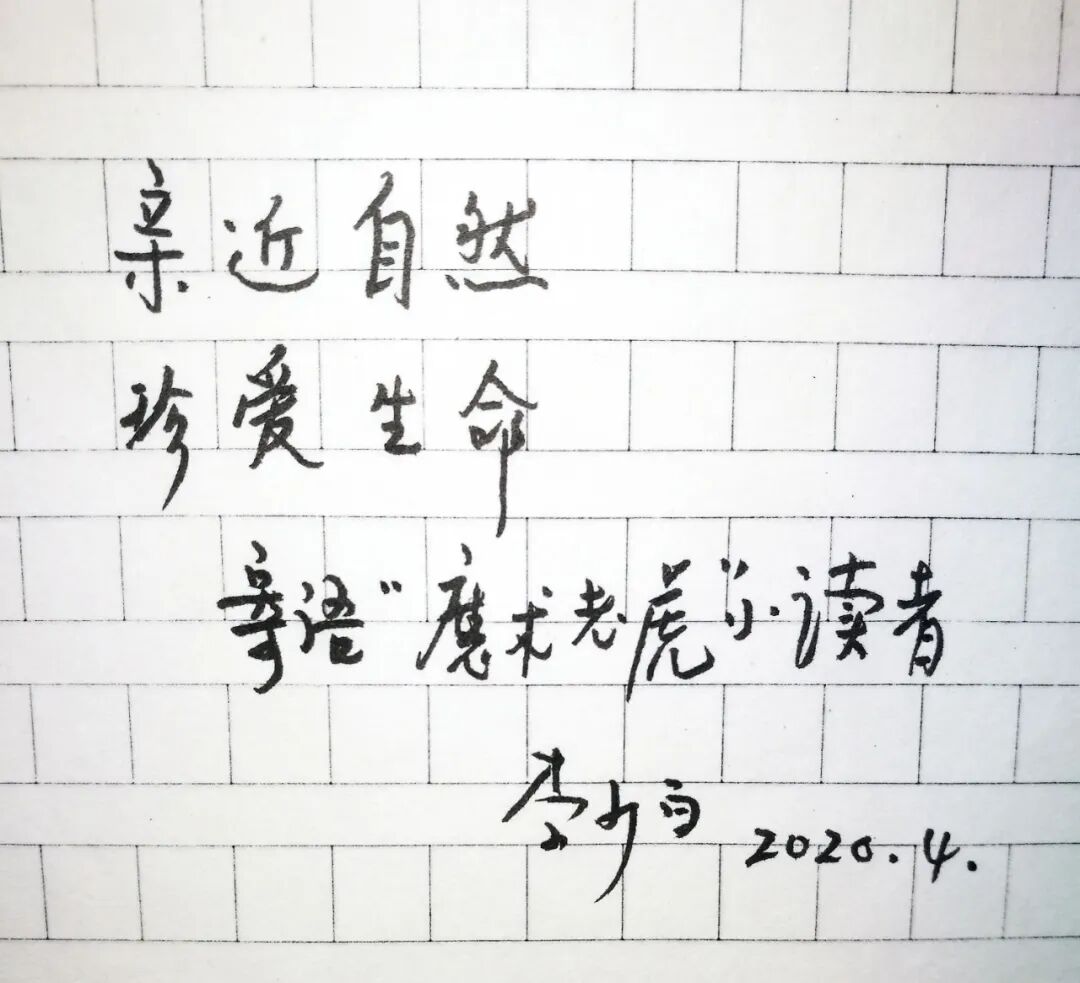 亲近自然
珍爱生命
寄语“魔术老虎”小读者
李少白 2020.4.